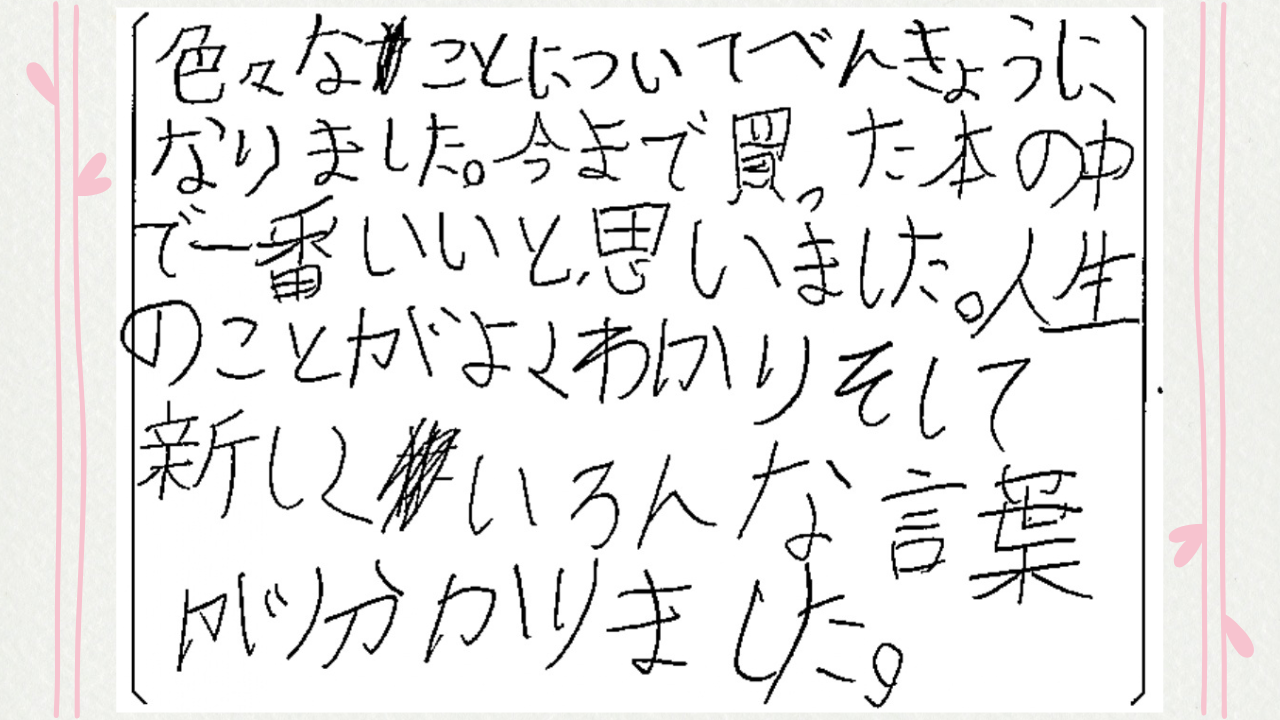 色々なことについてべんきょうに
なりました。今まで買った本の中
で一番いいと思いました。人生
のことがよくわかりそして
新しくいろんな言葉
が分かりました。